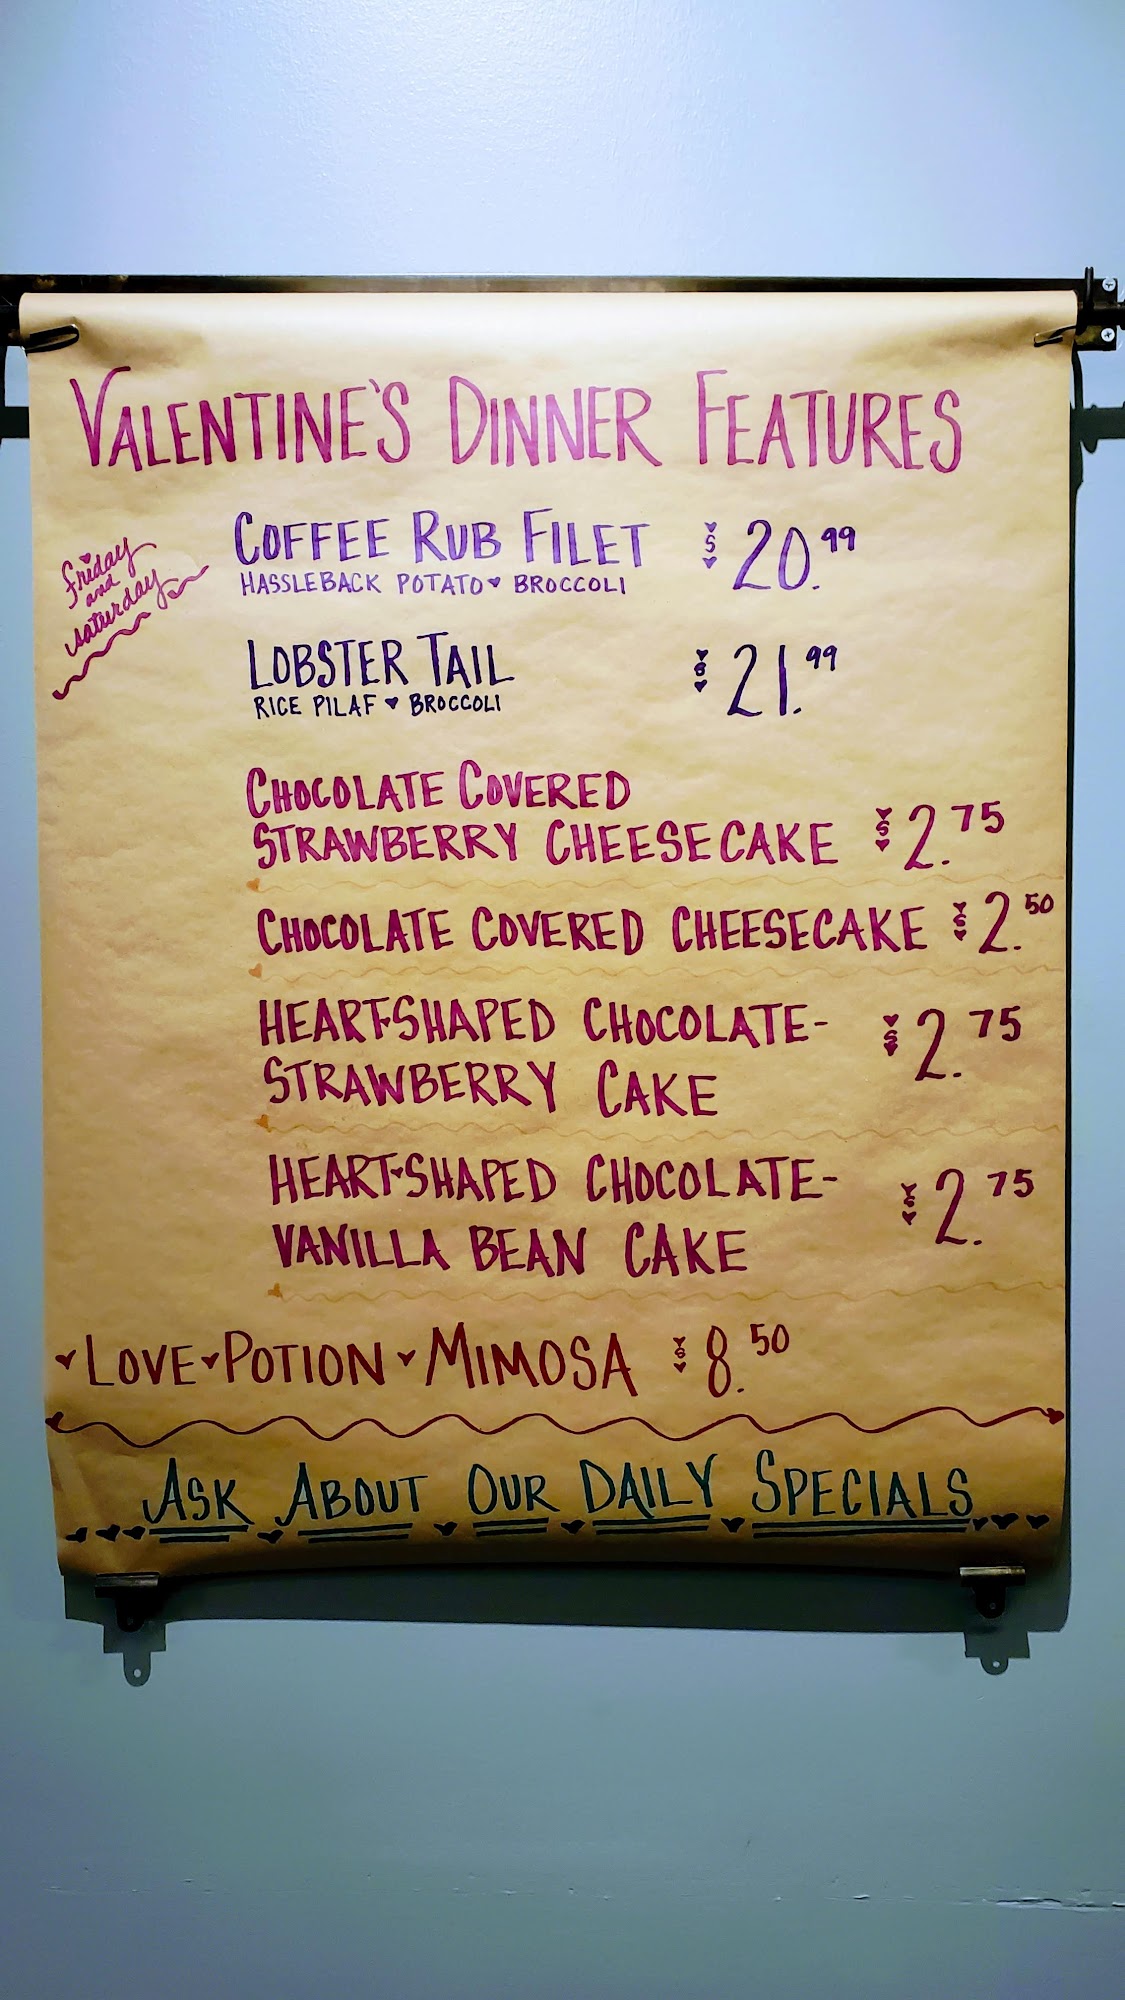 VALENTINE'S DINNER FEATURES
friday
and
saturday
COFFEE RUB FILET $20.99
HASSLEBACK POTATO ♥ BROCCOLI
LOBSTER TAIL $21.99
RICE PILAF ♥ BROCCOLI
CHOCOLATE COVERED
STRAWBERRY CHEESECAKE $2.75
CHOCOLATE COVERED CHEESECAKE $2.50
HEART-SHAPED CHOCOLATE- $2.75
STRAWBERRY CAKE
HEART-SHAPED CHOCOLATE- $2.75
VANILLA BEAN CAKE
♥ LOVE ♥ POTION ♥ MIMOSA $8.50
ASK ABOUT OUR DAILY SPECIALS